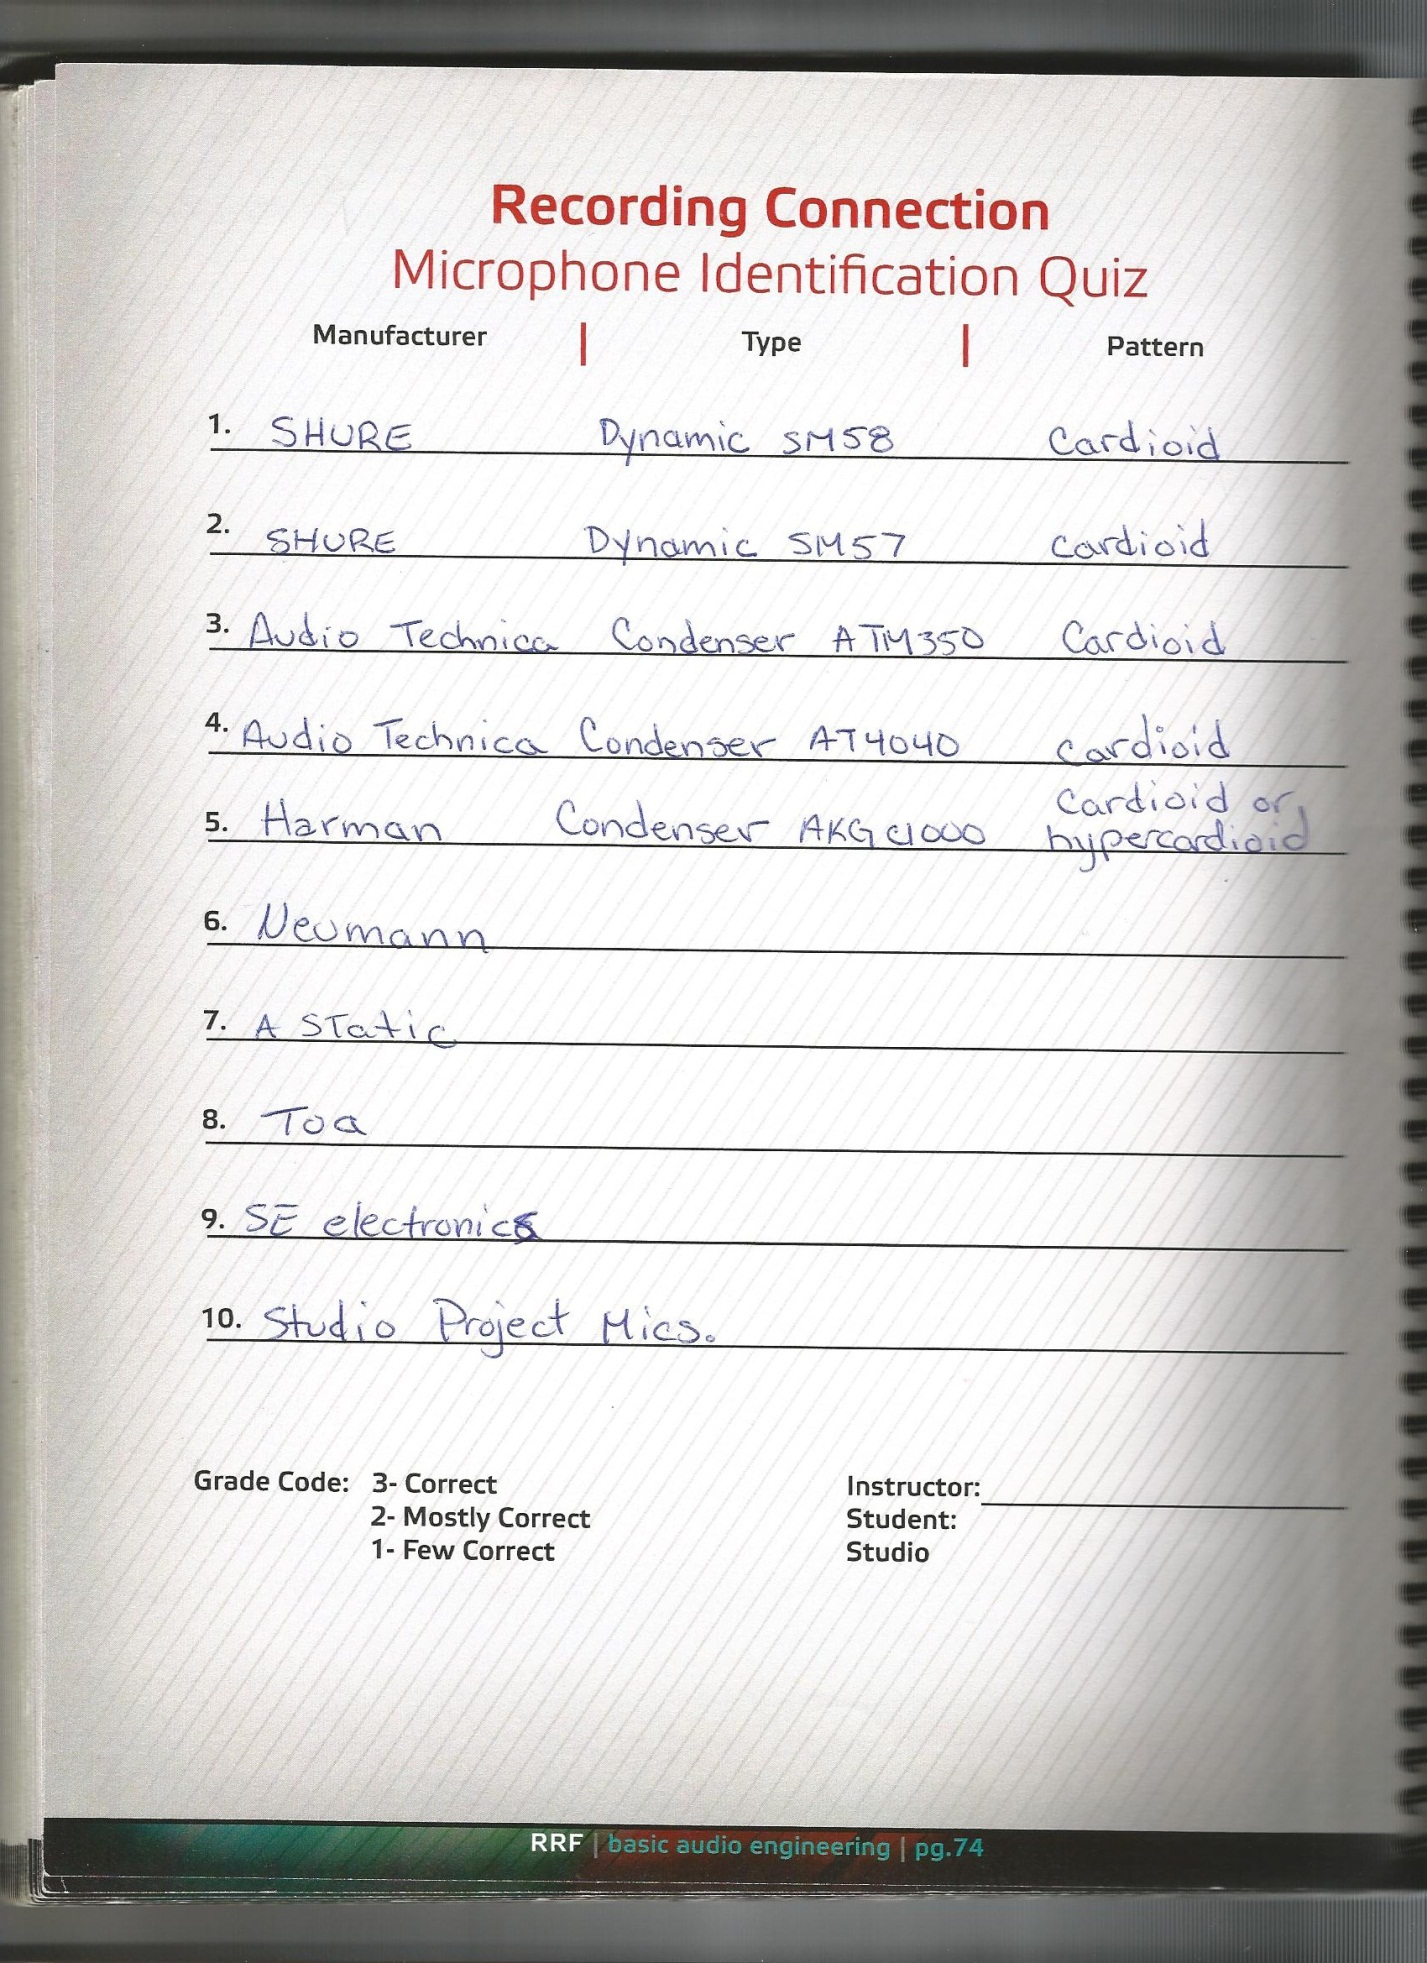 Recording Connection
Microphone Identification Quiz
Manufacturer | Type | Pattern
1. SHURE Dynamic SM58 Cardioid
2. SHURE Dynamic SM57 Cardioid
3. Audio Technica Condenser ATM350 Cardioid
4. Audio Technica Condenser AT4040 Cardioid
5. Harman Condenser AKG C1000 Cardioid or hypercardioid
6. Neumann
7. A STatic
8. Toa
9. SE electronics
10. Studio Project Mics.
Grade Code: 3- Correct
2- Mostly Correct
1- Few Correct
Instructor:
Student:
Studio
RRF | basic audio engineering | pg.74